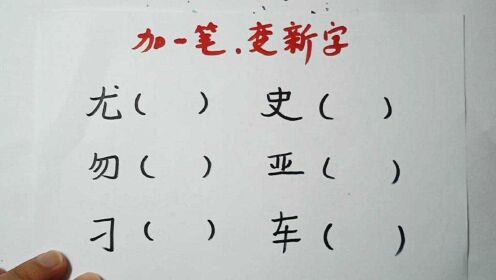 加一笔.变新字
尤( ) 史( )
勿( ) 亚( )
刁( ) 车( )